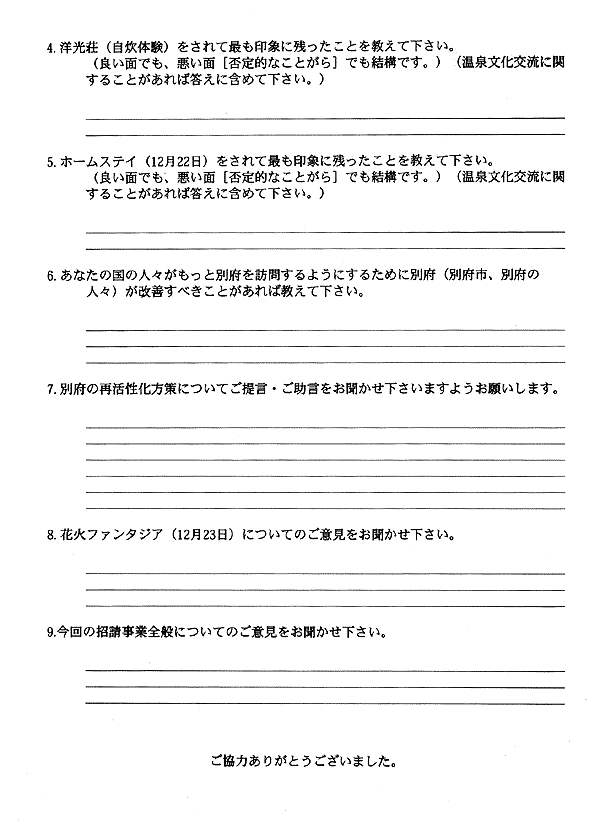 4. 洋光荘（自炊体験）をされて最も印象に残ったことを教えて下さい。
（良い面でも、悪い面［否定的なことがら］でも結構です。）（温泉文化交流に関
することがあれば答えに含めて下さい。）
5. ホームステイ（12月22日）をされて最も印象に残ったことを教えて下さい。
（良い面でも、悪い面［否定的なことがら］でも結構です。）（温泉文化交流に関
することがあれば答えに含めて下さい。）
6. あなたの国の人々がもっと別府を訪問するようにするために別府（別府市、別府の
人々）が改善すべきことがあれば教えて下さい。
7. 別府の再活性化方策についてご提言・ご助言をお聞かせ下さいますようお願いします。
8. 花火ファンタジア（12月23日）についてのご意見をお聞かせ下さい。
9.今回の招請事業全般についてのご意見をお聞かせ下さい。
ご協力ありがとうございました。